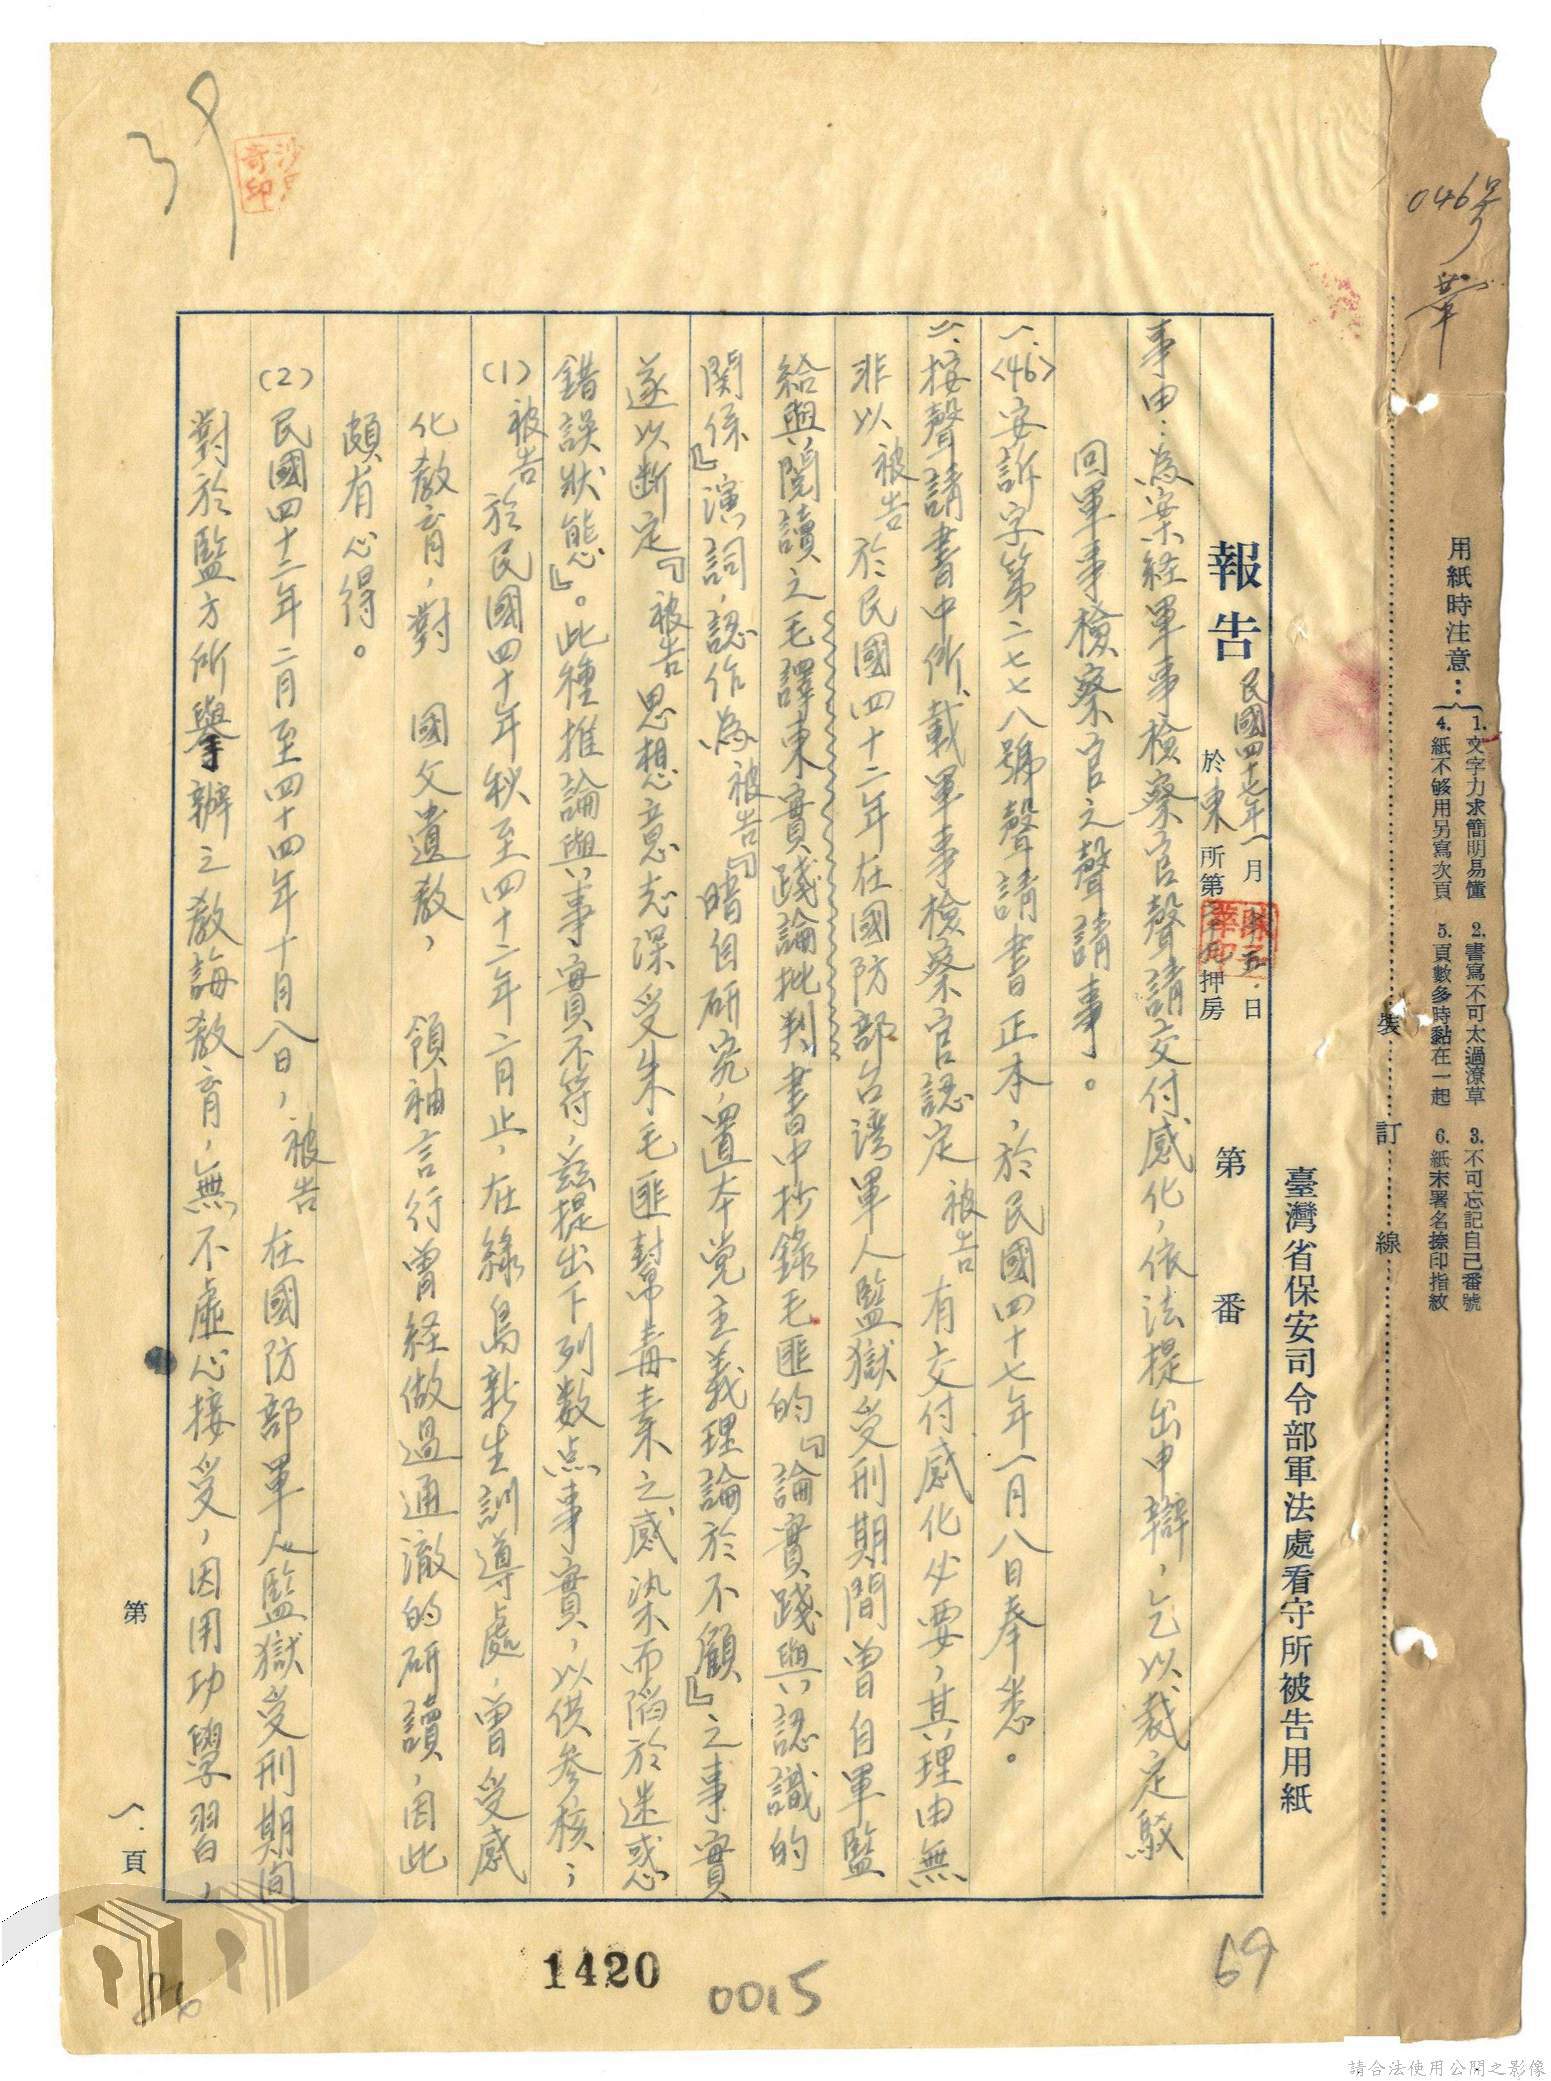 046号
用紙時注意：
1. 文字力求簡明易懂 2. 書寫不可太過潦草 3. 不可忘記自己番號
4. 紙不够用另寫次頁 5. 頁數多時黏在一起 6. 紙末署名捺印指紋
裝訂線
臺灣省保安司令部軍法處看守所被告用紙
報告 民國四十七年一月十五日 第 番
於東所第 押房
事由：為案経軍事檢察官聲請交付感化，依法提出申辯，乞以裁定駁
回軍事檢察官之聲請事。
一、〈46〉安訴字第二七七八號聲請書正本，於民國四十七年一月八日奉悉。
二、按聲請書中所載軍事檢察官認定 被告有交付感化必要，其理由無
非以 被告於民國四十二年在國防部台湾軍人監獄受刑期間曾自軍監
給與閱讀之毛譯東實踐論批判書中抄錄毛匪的『論實踐與認識的
関係』演詞，認作為 被告『暗自研究，置本党主義理論於不顧』之事實
遂以断定『被告思想意志深受朱毛匪幫毒素之感染而陷於迷惑
錯誤狀態』。此種推論與事實不符，茲提出下列数点事實，以供參核；
(1) 被告於民國四十年秋至四十二年二月止，在綠島新生訓導處，曾受感
化教育，對 國父遺教， 領袖言行曾経做過通澈的研讀，因此
頗有心得。
(2) 民國四十二年二月至四十四年十月八日，被告在國防部軍人監獄受刑期间
對於監方所舉辦之教誨教育，無不虛心接受，因用功學習，
第 一 頁
1420
0015
69
請合法使用公開之影像